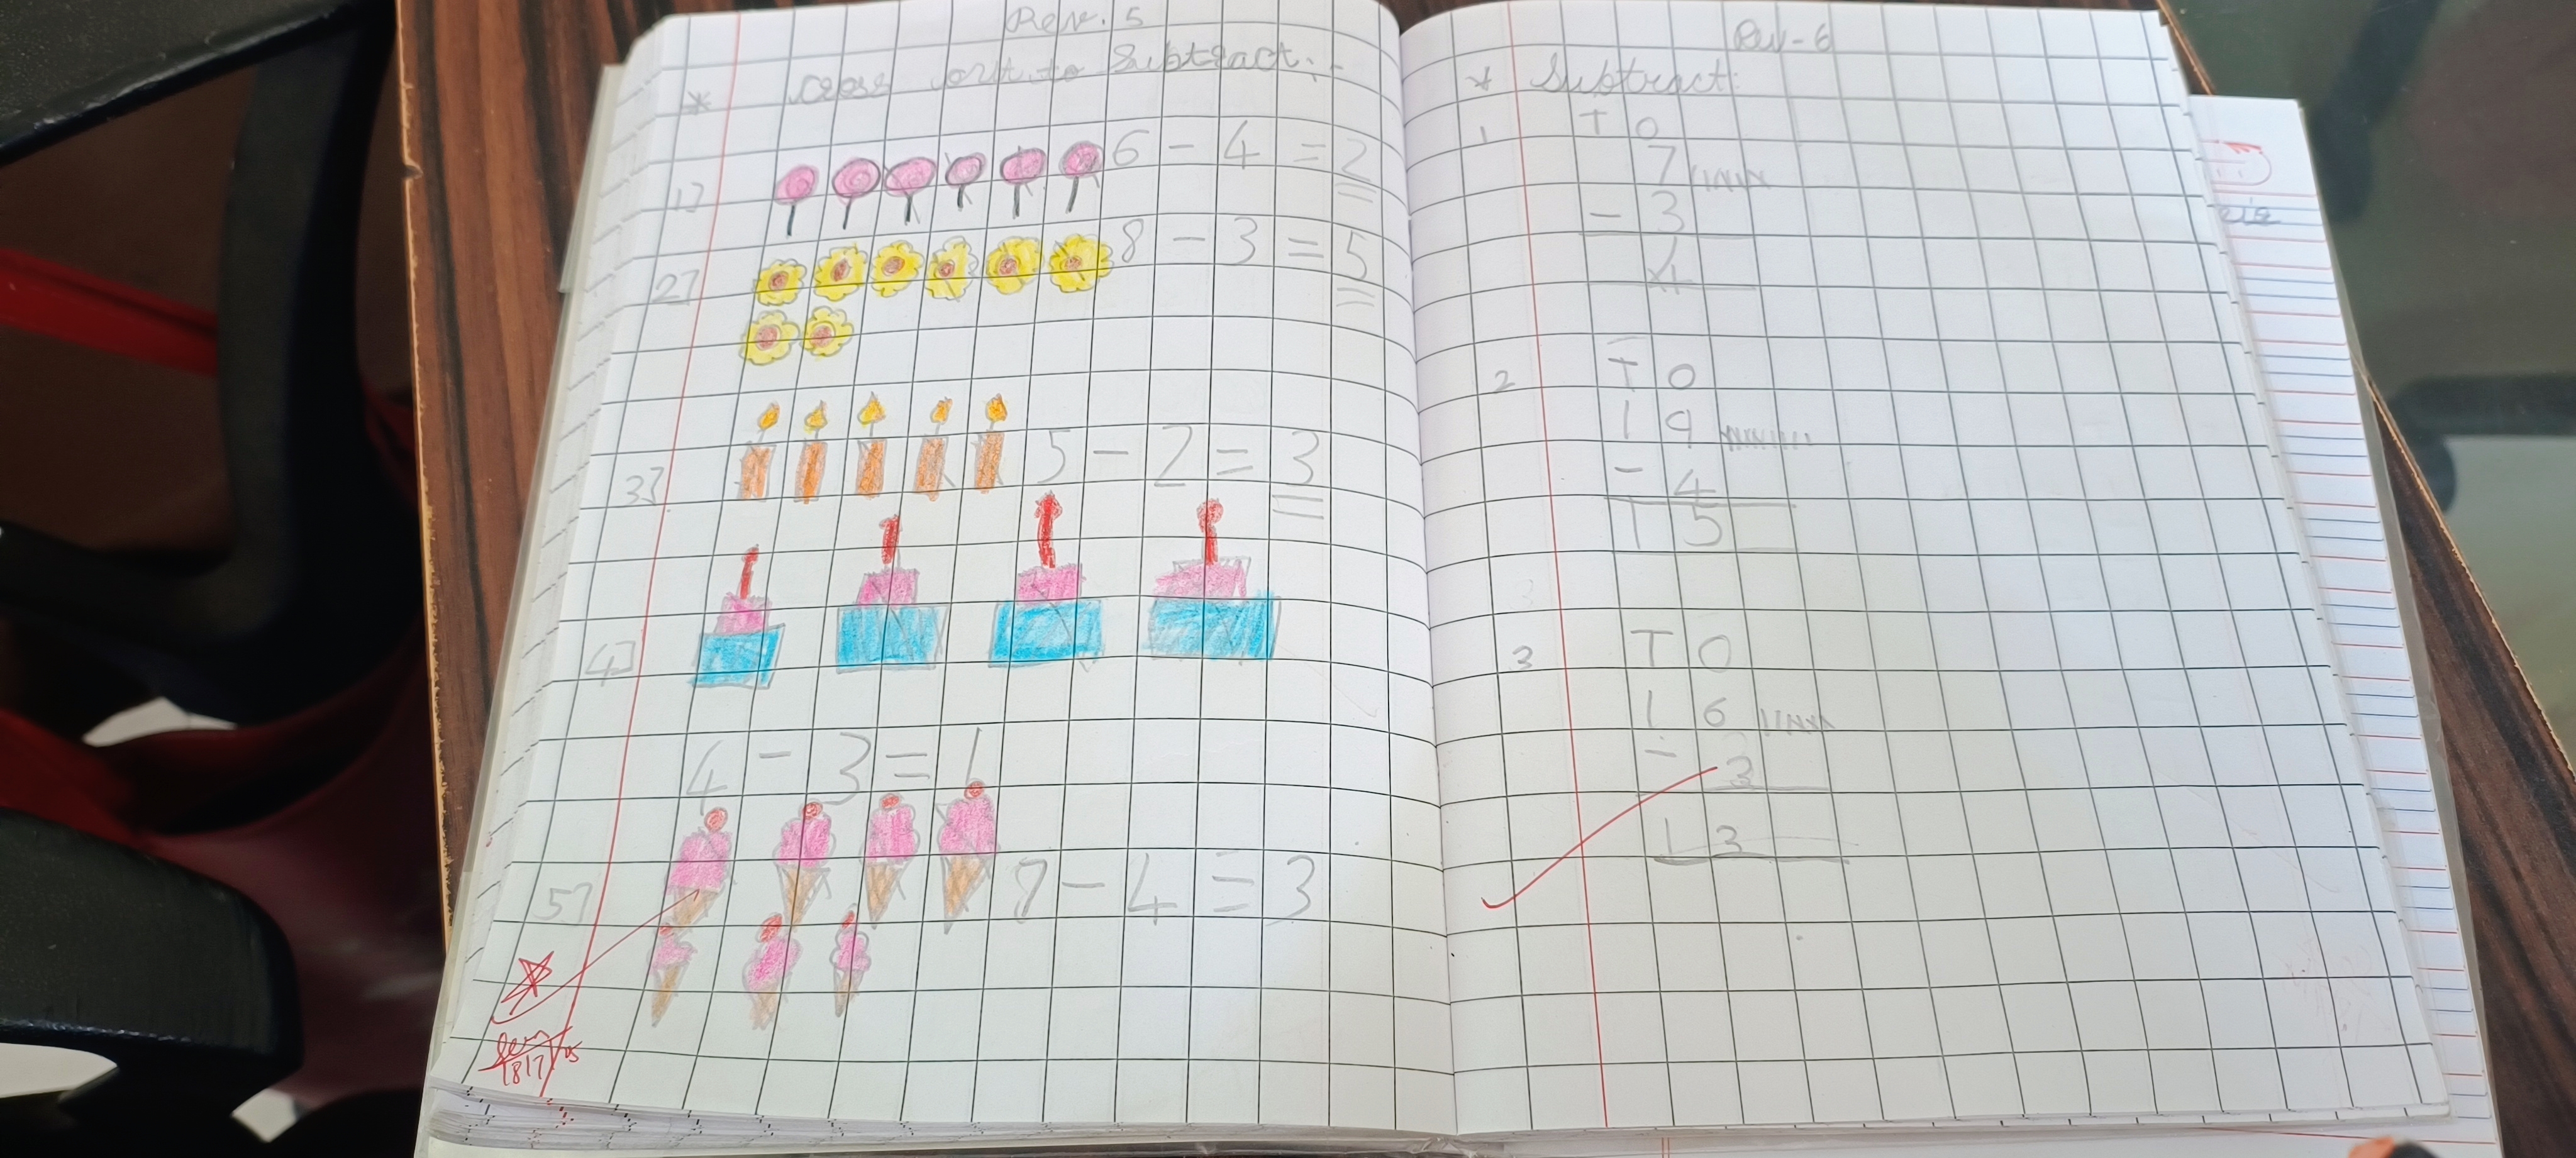 Rev. 5
* Cross out to Subtract:-
1] 6 - 4 = 2
2] 8 - 3 = 5
3] 5 - 2 = 3
4]
4 - 3 = 1
5] 7 - 4 = 3
18/7/25
Rev - 6
* Subtract:
1 T O
7
- 3
4
2 T O
1 9
- 4
1 5
3 T O
1 6
- 3
1 3